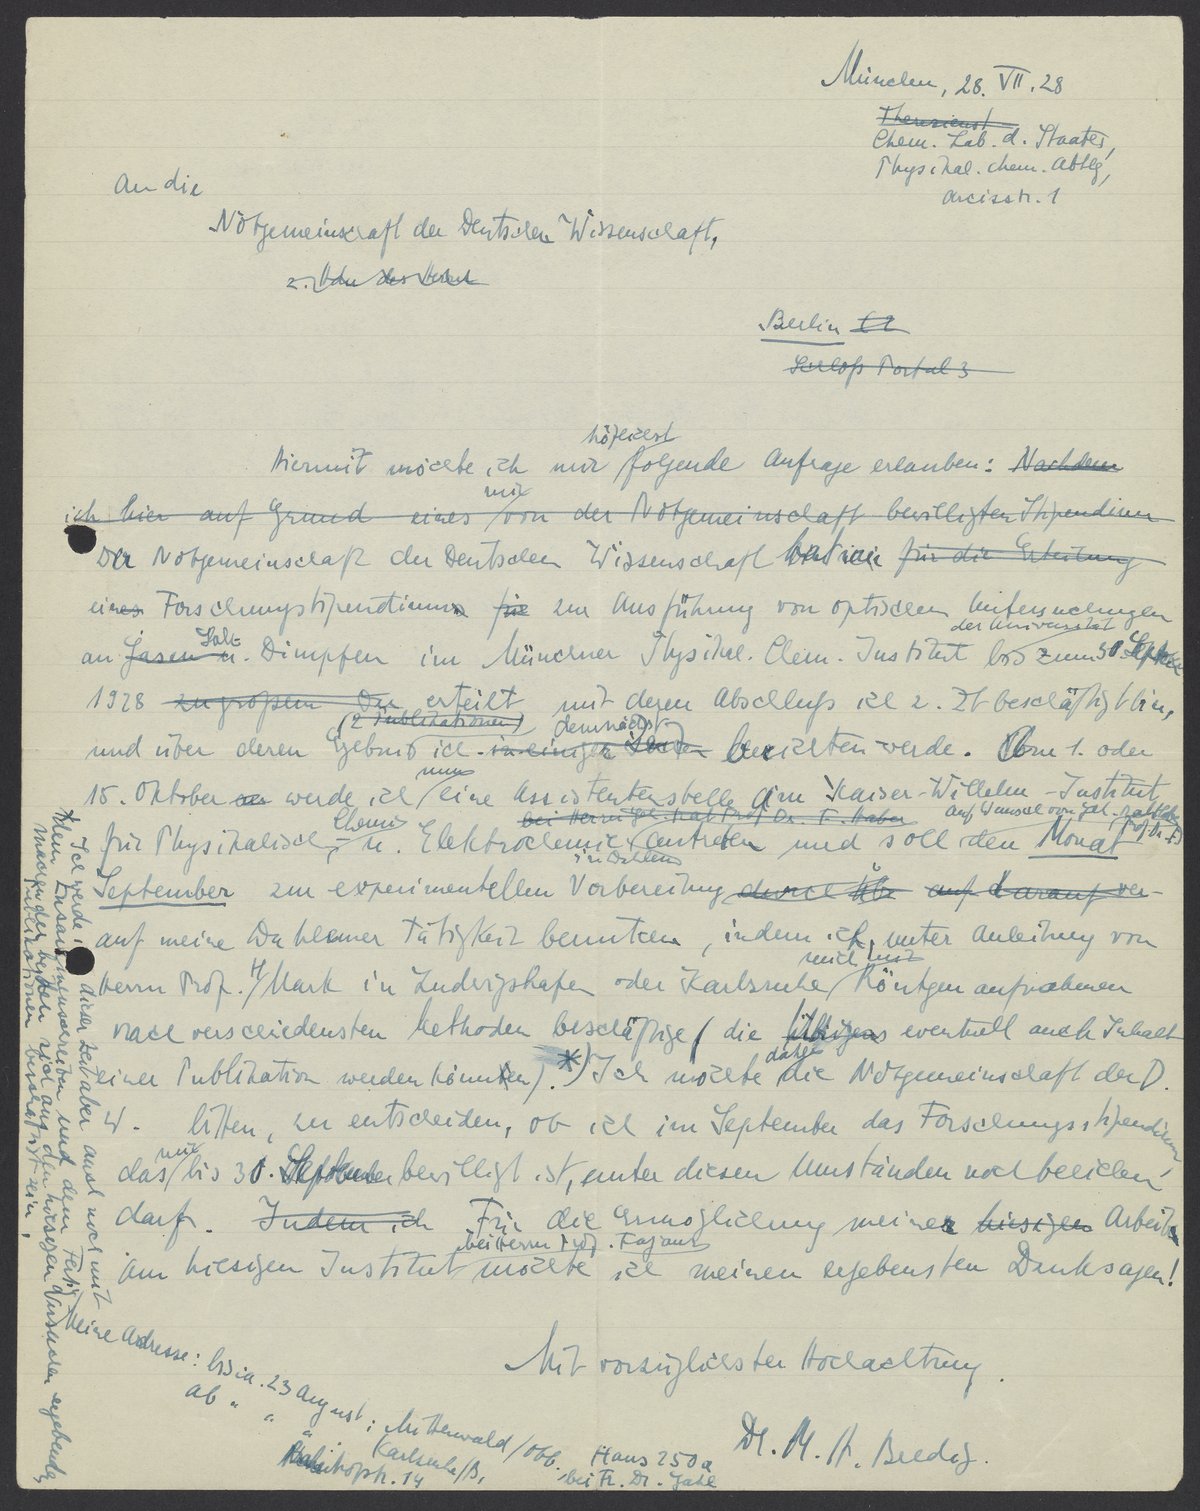 München, 28. VII. 28
Chem. Lab. d. Staates,
Physikal. chem. Abtlg,
Arcisstr. 1
An die
Notgemeinschaft der Deutschen Wissenschaft,
z. Hdn des Herrn
Berlin C 2
Schloß Portal 3
höflichst
Hiermit möchte ich mir folgende Anfrage erlauben: Nachdem
mir
ich hier auf Grund eines von der Notgemeinschaft bewilligten Stipendiums
Der Notgemeinschaft der Deutschen Wissenschaft hat mir für die Erteilung
eines Forschungsstipendiums für zur Ausführung von optischen Untersuchungen
der Universität
an Gasen u. Salz Dämpfen im Münchner Physikal. Chem. Institut bis zum 30. September
1928 zu großem Dan erteilt mit deren Abschluß ich z. Zt beschäftigt bin,
(2 Publikationen) demnächst
und über deren Ergebnis ich in einigen berichten werde. Am 1. oder
nun
15. Oktober werde ich eine Assistentenstelle am Kaiser-Wilhelm-Institut
Chemie bei Herrn Geh. Rat Prof. Dr. F. Haber auf Wunsch von Geh. Rat Haber
für Physikalisch- u. Elektrochemie antreten und soll den Monat
in Dahlem
September zur experimentellen Vorbereitung durch auf darauf ver-
auf meine Dahlemer Tätigkeit benutzen, indem ich unter Anleitung von
mich mit
Herrn Prof. H. Mark in Ludwigshafen oder Karlsruhe Röntgenaufnahmen
nach verschiedensten Methoden beschäftige (die übrigens eventuell auch Inhalt
daher
einer Publikation werden könnten).*) Ich möchte die Notgemeinschaft der D.
W. bitten, zu entscheiden, ob ich im September das Forschungsstipendium,
mir
das bis 30. September bewilligt ist, unter diesen Umständen noch beziehen
darf. Indem ich Für die Ermöglichung meiner hiesigen Arbeit
bei Herrn Prof. Fajans
am hiesigen Institut möchte ich meinen ergebensten Dank sagen!
Mit vorzüglichster Hochachtung.
Dr. M. A. Bredig.
Meine Adresse: bis ca. 23 August: Mittenwald/Obb. Haus 250a
bei Fr. Dr.
ab " " " : Karlsruhe/B.
14
*) Ich werde in dieser Zeit aber auch noch mit
dem Zusammenschreiben und dem Fertig-
machen der beiden sich aus den hiesigen Versuchen ergebenden
Publikationen beschäftigt sein.